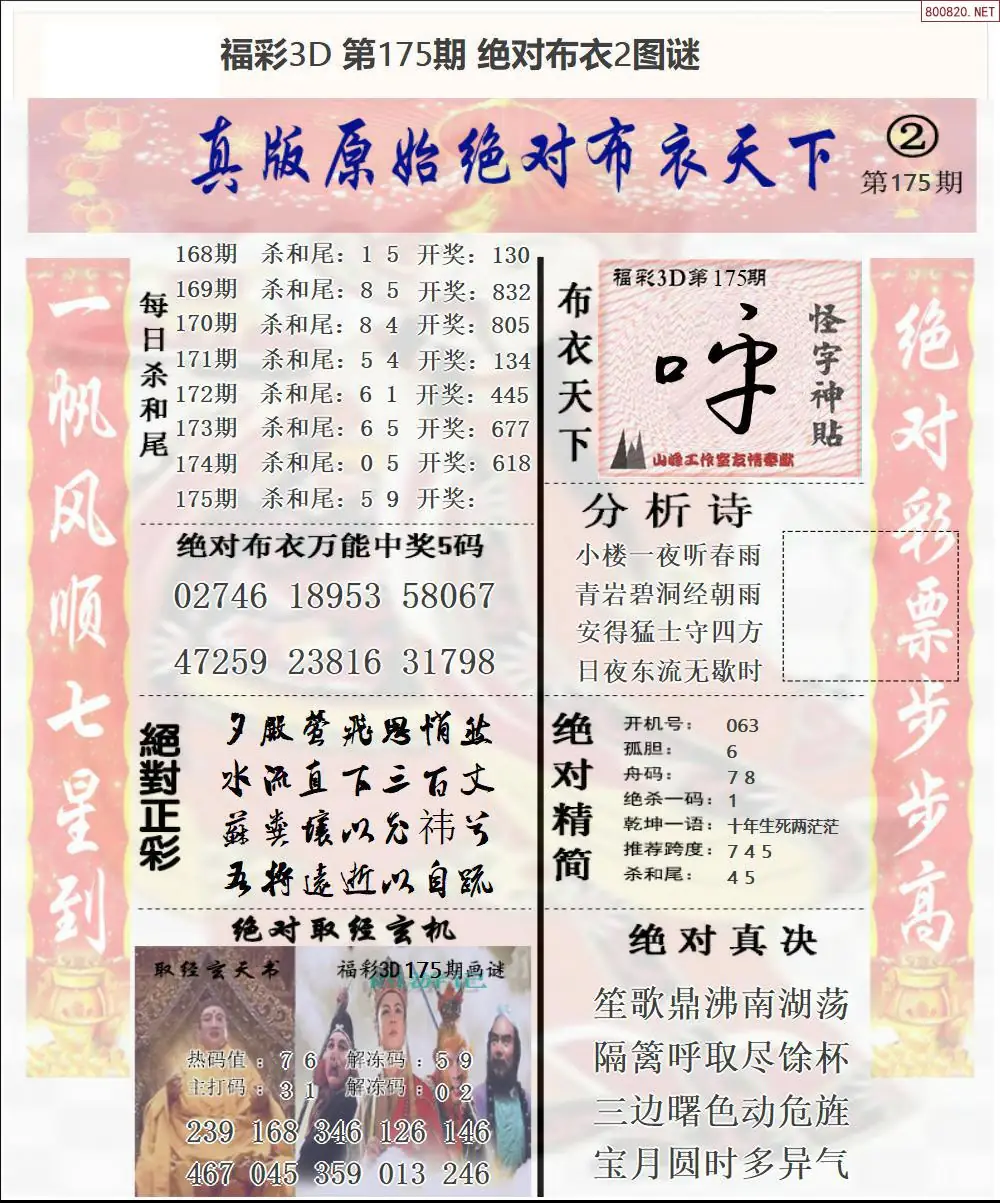 800820.NET
福彩3D 第175期 绝对布衣2图谜
真版原始绝对布衣天下
②
第175期
一帆风顺七星到
每日杀和尾
168期 杀和尾：1 5 开奖：130
169期 杀和尾：8 5 开奖：832
170期 杀和尾：8 4 开奖：805
171期 杀和尾：5 4 开奖：134
172期 杀和尾：6 1 开奖：445
173期 杀和尾：6 5 开奖：677
174期 杀和尾：0 5 开奖：618
175期 杀和尾：5 9 开奖：
绝对布衣万能中奖5码
02746 18953 58067
47259 23816 31798
絕對正彩
夕殿萤飛思悄然
水流直下三百丈
蘇糞壤以充祎兮
吾将遠逝以自疏
绝对取经玄机
取经玄天书
福彩3D175期画谜
热码值：7 6 解冻码：5 9
主打码：3 1 解冻码：0 2
239 168 346 126 146
467 045 359 013 246
布衣天下
福彩3D第175期
怪字神貼
山峰工作室友情奉献
分析诗
小楼一夜听春雨
青岩碧洞经朝雨
安得猛士守四方
日夜东流无歇时
绝对精简
开机号： 063
孤胆： 6
舟码： 7 8
绝杀一码：1
乾坤一语：十年生死两茫茫
推荐跨度：7 4 5
杀和尾： 4 5
绝对真决
笙歌鼎沸南湖荡
隔篱呼取尽馀杯
三边曙色动危旌
宝月圆时多异气
绝对彩票步步高